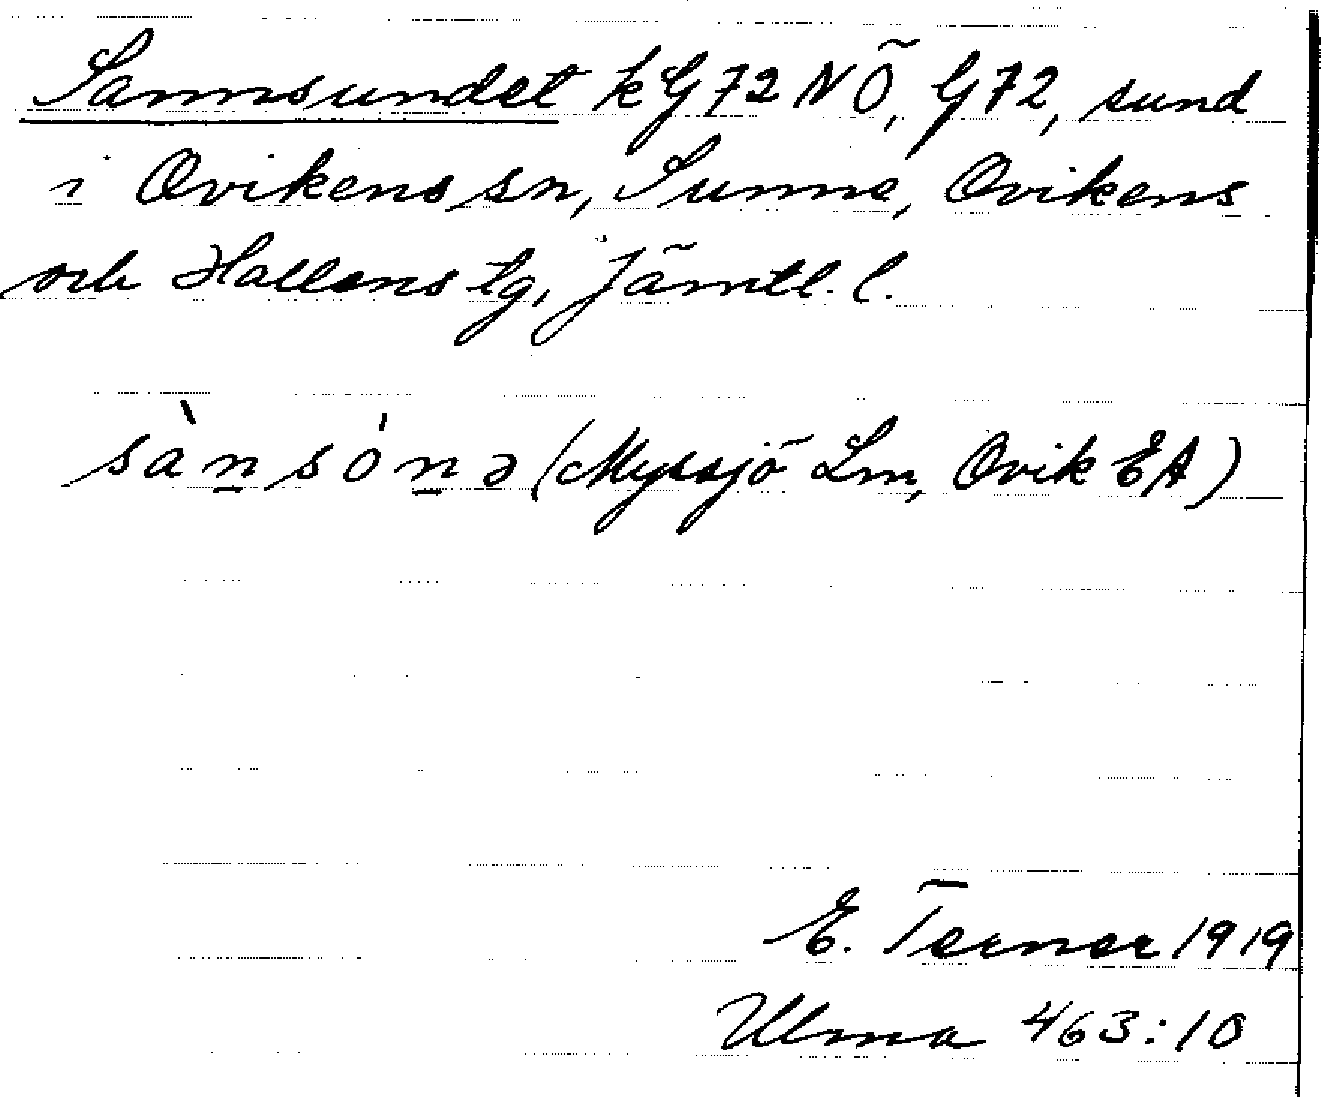 Sannsundet kG72NÖ, G72, sund
i Ovikens sn, Sunne, Ovikens
och Hallens tg, Jämtl. l.
sànsón̠ə (Myssjö Lm, Ovik EA)
E. Terner 1919
Ulma 463:10